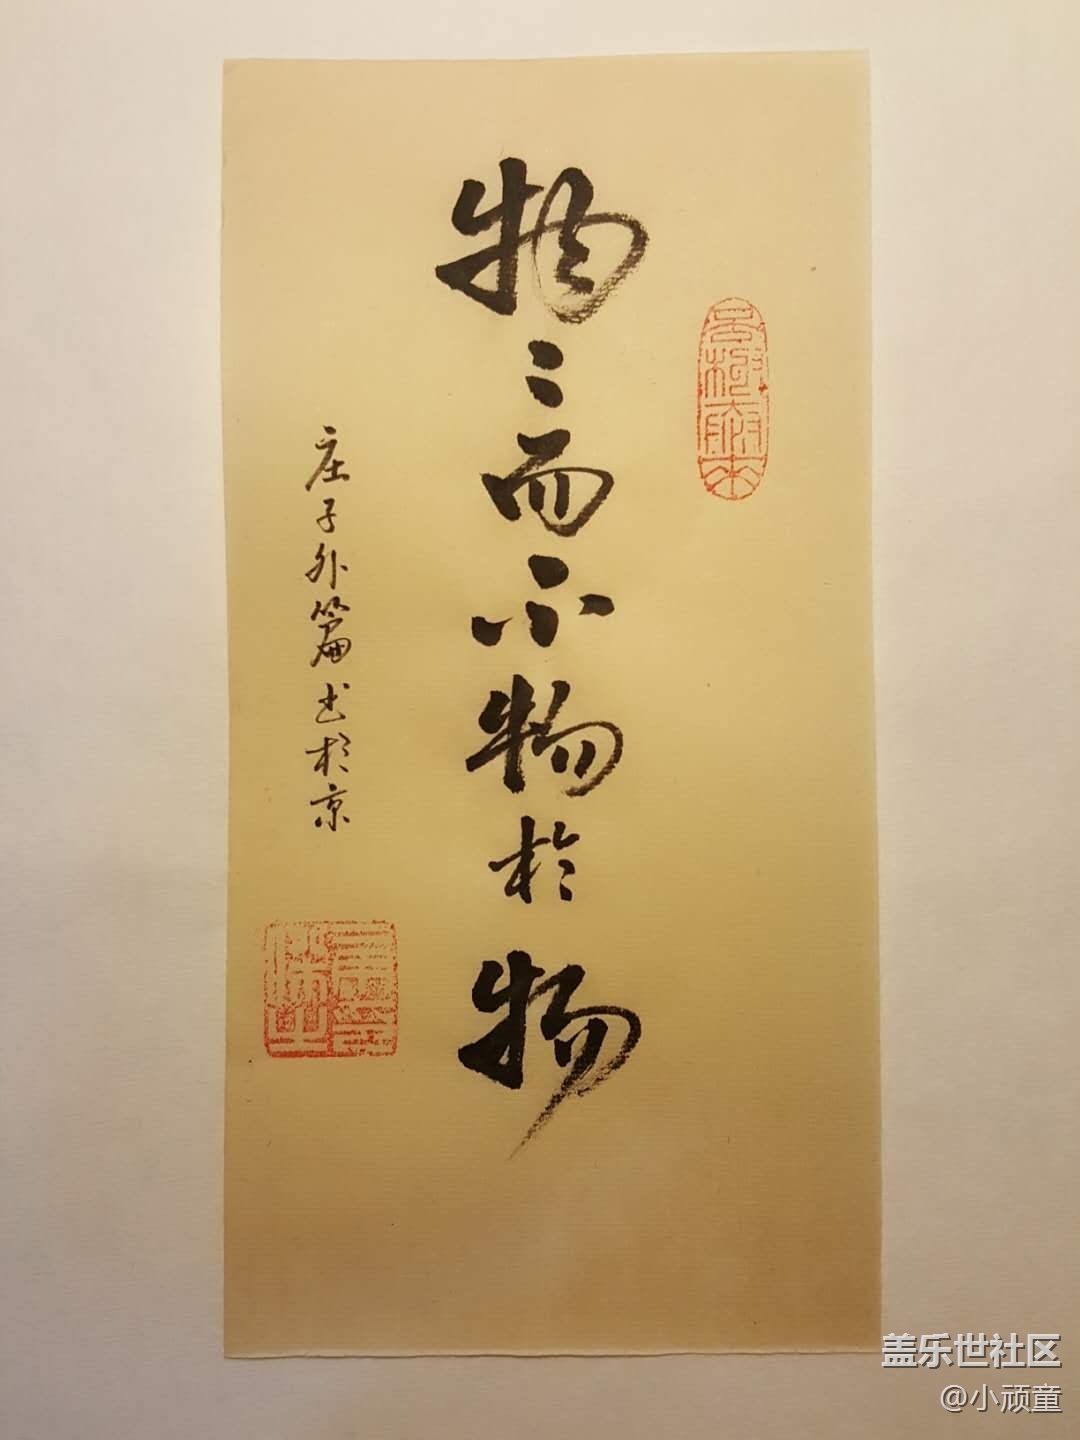 物〻而不物於物
庄子外篇书於京
盖乐世社区
@小顽童